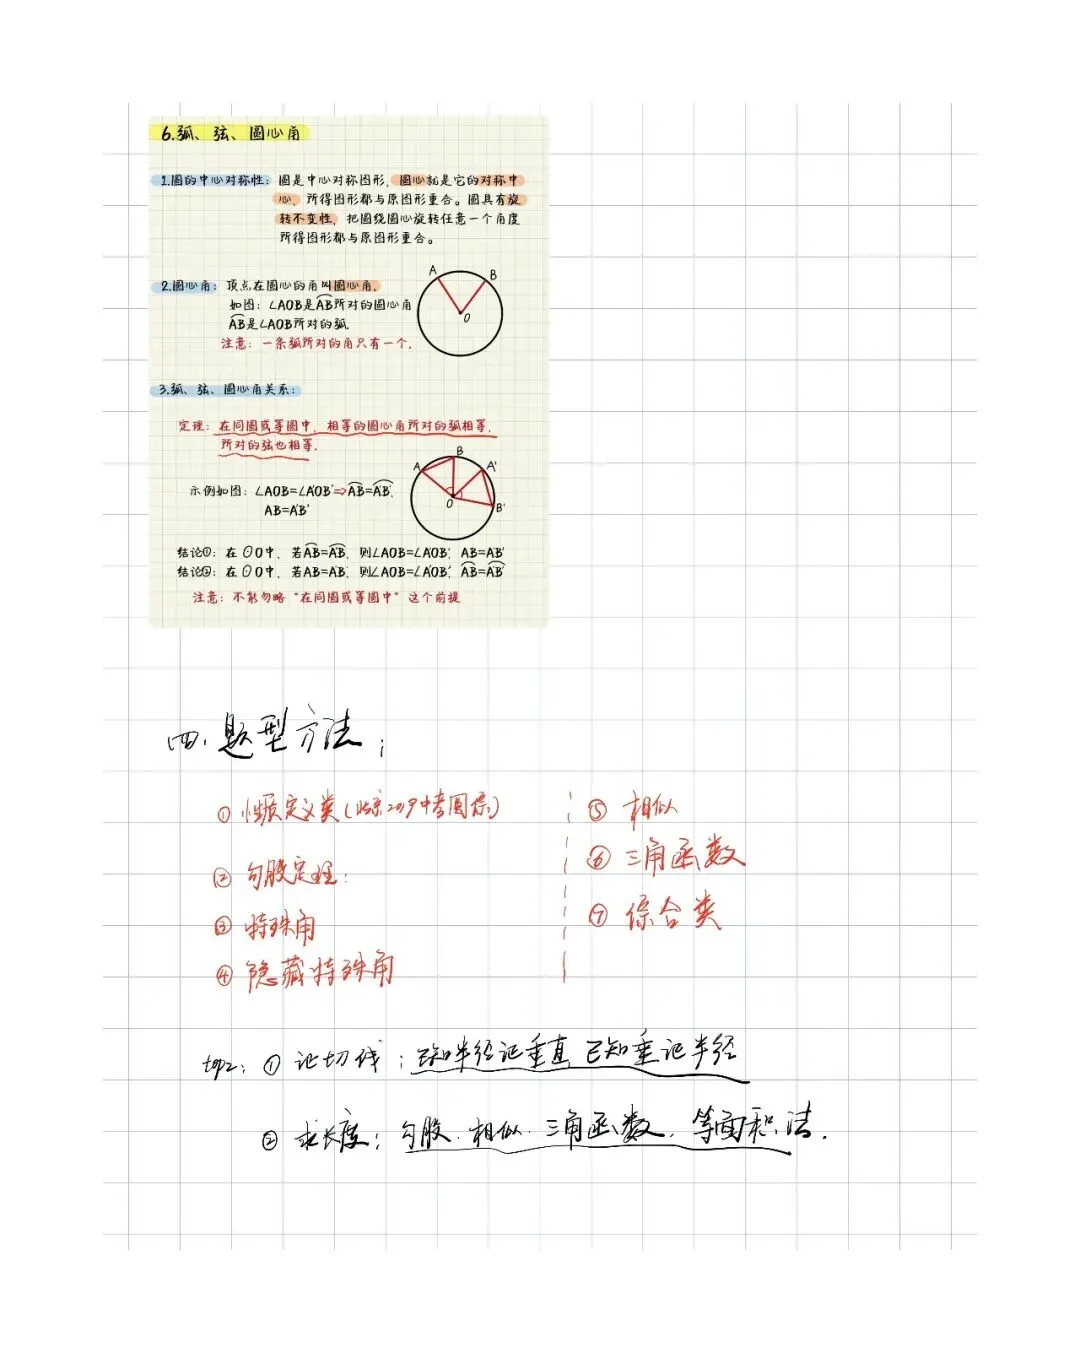 6.弧、弦、圆心角
1.圆的中心对称性：圆是中心对称图形，圆心就是它的对称中
心，所得图形都与原图形重合。圆具有旋
转不变性，把圆绕圆心旋转任意一个角度
所得图形都与原图形重合。
2.圆心角：顶点在圆心的角叫圆心角，
如图：∠AOB是AB所对的圆心角
AB是∠AOB所对的弧.
注意：一条弧所对的角只有一个.
A
B
O
3.弧、弦、圆心角关系：
定理：在同圆或等圆中，相等的圆心角所对的弧相等，
所对的弦也相等.
示例如图：∠AOB=∠A'OB'⇒AB=A'B',
AB=A'B'
A
B
A'
O
B'
结论①：在⊙O中，若AB=A'B'，则∠AOB=∠A'OB'，AB=A'B'
结论②：在⊙O中，若AB=A'B'，则∠AOB=∠A'OB'，AB=A'B'
注意：不能忽略"在同圆或等圆中"这个前提
四、题型方法；
① 性质定义类(北京2019中考圆综)
② 勾股定理：
③ 特殊角
④ 隐藏特殊角
⑤ 相似
⑥ 三角函数
⑦ 综合类
top2：① 证切线：已知半径证垂直，已知垂证半径
② 求长度：勾股.相似.三角函数.等面积法.